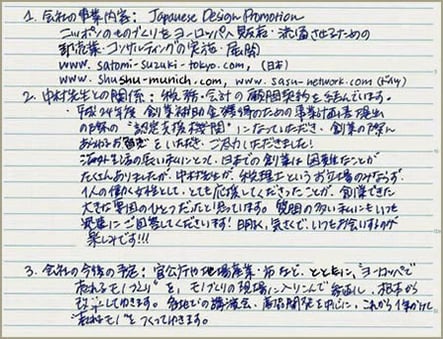 1. 会社の事業内容: Japanese Design Promotion
ニッポンのものづくりをヨーロッパへ販路・流通させるための
卸流業・コンサルティングの実施・展開
www.satomi-suzuki-tokyo.com, (日本)
www.shushu-munich.com, www.sasu-network.com (ドイツ)
2. 中村先生との関係: 税務・会計の顧問契約を結んでいます。
・平成24年度 創業補助金獲得のための事業計画書提出
の際の“認定支援機関”になっていただき、創業の
をいただき、ご尽力いただきました!
海外生活の長い私にとって、日本での創業は困難なことが
たくさんありましたが、中村先生が、税理士というお立場のみならず、
1人の働く女性として、とても応援してくださったことが、創業できた
大きな要因のひとつだったと思っています。質問の多い私にもいつも
迅速にご回答してくださいます! 明るく、気さくで、いつもお会いするのが
楽しみです!!!
3. 会社の今後の予定: 官公庁や地場産業・市など、とともに、“ヨーロッパで
売れるモノづくり”を、モノづくりの現場に入りこんで 、根本から
していきます。各地での講演会、商品開発を中心に、これから
“売れるモノ”をつくってゆきます。